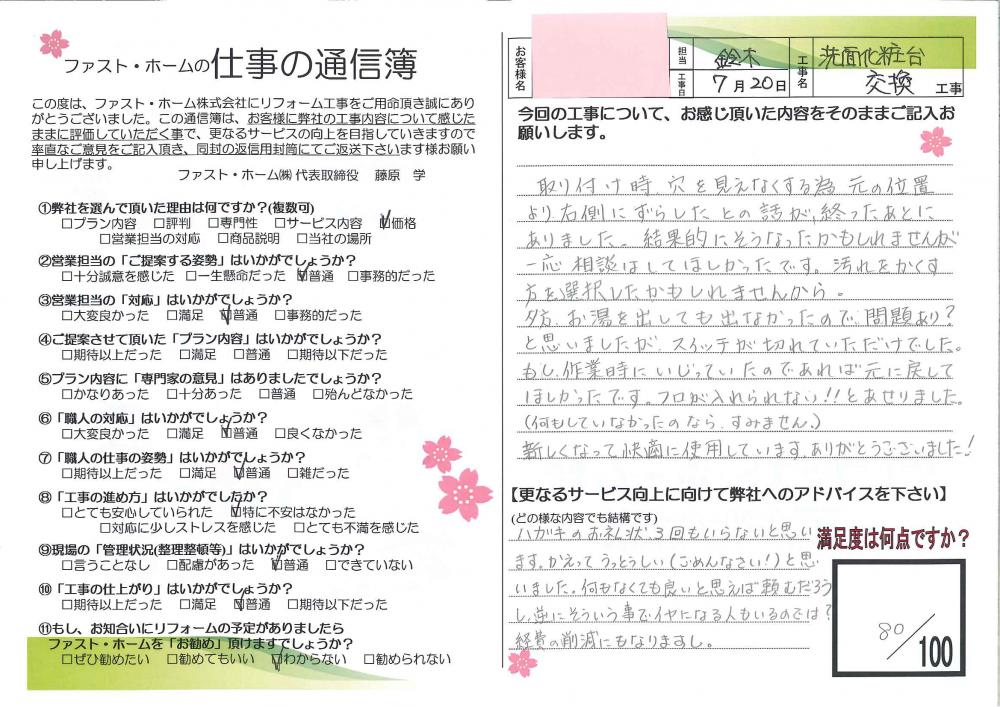 ファスト・ホームの仕事の通信簿
この度は、ファスト・ホーム株式会社にリフォーム工事をご用命頂き誠にあり
がとうございました。この通信簿は、お客様に弊社の工事内容について感じた
ままに評価していただくく事で、更なるサービスの向上を目指していきますので
率直なご意見をご記入頂き、同封の返信用封筒にてご返送下さいます様お願い
申し上げます。
ファスト・ホーム㈱ 代表取締役 藤原 学
①弊社を選んで頂いた理由は何ですか?(複数可)
□プラン内容 □評判 □専門性 □サービス内容 ☑価格
□営業担当の対応 □商品説明 □当社の場所
②営業担当の「ご提案する姿勢」はいかがでしょうか?
□十分誠意を感じた □一生懸命だった ☑普通 □事務的だった
③営業担当の「対応」はいかがでしょうか?
□大変良かった □満足 ☑普通 □事務的だった
④ご提案させて頂いた「プラン内容」はいかがでしょうか?
□期待以上だった □満足 □普通 □期待以下だった
⑤プラン内容に「専門家の意見」はありましたでしょうか?
□かなりあった □十分あった □普通 □殆んどなかった
⑥「職人の対応」はいかがでしょうか?
□大変良かった □満足 ☑普通 □良くなかった
⑦「職人の仕事の姿勢」はいかがでしょうか?
□期待以上だった □満足 ☑普通 □雑だった
⑧「工事の進め方」はいかがでしたか?
□とても安心していられた ☑特に不安はなかった
□対応に少しストレスを感じた □とても不満を感じた
⑨現場の「管理状況(整理整頓等)」はいかがでしょうか?
□言うことなし □配慮があった ☑普通 □できていない
⑩「工事の仕上がり」はいかがでしょうか?
□期待以上だった □満足 ☑普通 □期待以下だった
⑪もし、お知合いにリフォームの予定がありましたら
ファスト・ホームを「お勧め」頂けますでしょうか?
□ぜひ勧めたい □勧めてもいい ☑わからない □勧められない
お客様名 担当 鈴木 工事名 洗面化粧台
工事日 7月20日 交換 工事
今回の工事について、お感じ頂いた内容をそのままご記入お
願いします。
取り付け時 穴を見えなくする為 元の位置
より右側にずらしたとの話が、終ったあとに
ありました。結果的にそうなったかもしれませんが
一応 相談はしてほしかったです。汚れをかくす
方を選択したかもしれませんから。
夕方、お湯を出しても出なかったので問題あり?
と思いましたが、スイッチが切れていただけでした。
もし、作業時にいじっていたのであれば元に戻して
ほしかったです。フロが入れられない!!とあせりました。
(何もしていなかったのなら、すみません。)
新しくなって快適に使用しています。ありがとうございました!
【更なるサービス向上に向けて弊社へのアドバイスを下さい】
(どの様な内容でも結構です)
ハガキのお礼状、3回もいらないと思い
ます。かえってうっとうしい(ごめんなさい!)と思
いました。何もなくても良いと思えば頼むだろう
し、逆にそういう事でイヤになる人もいるのでは?
経費の削減にもなりますし。
満足度は何点ですか?
80/100